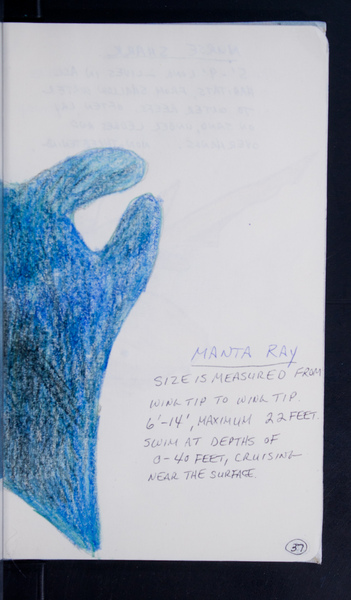 MANTA RAY
SIZE IS MEASURED FROM
WING TIP TO WING TIP.
6'-14', MAXIMUM 22 FEET.
SWIM AT DEPTHS OF
0-40 FEET, CRUISING
NEAR THE SURFACE.
37